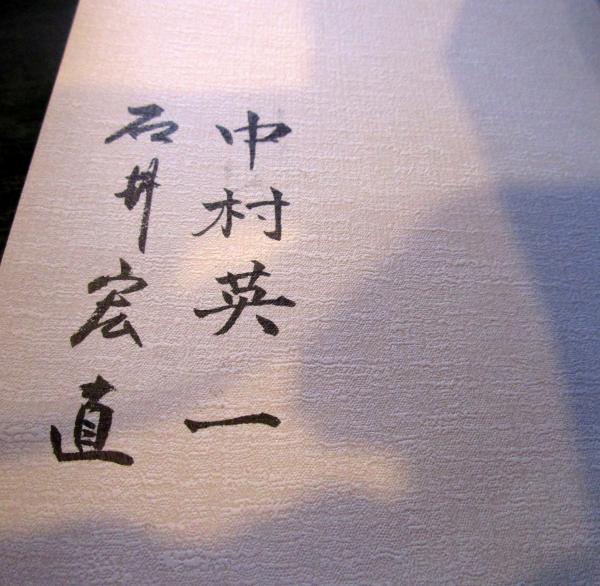 中村英一
石井宏直